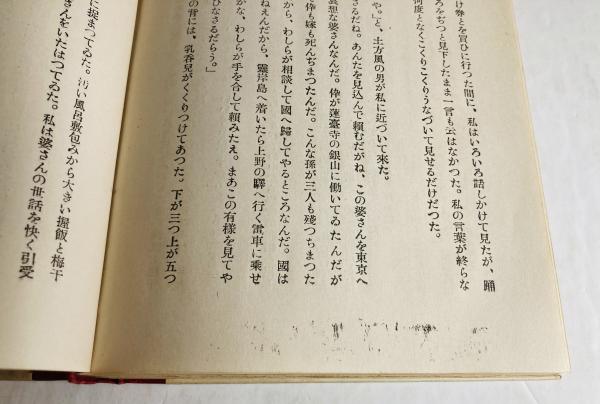 け巻とを買ひに行つた間に、私はいろいろ話しかけて見たが、踊
ろをぢつと見下したまま一言も云はなかつた。私の言葉が終らな
何度となくこくりこくりうなづいて見せるだけだつた。
や。」と、土方風の男が私に近づいて來た。
さだね。あんたを見込んで頼むだがね、この婆さんを東京へ
哀想な婆さんなんだ。伜が蓮臺寺の銀山に働いてゐたんだが
で伜も嫁も死んぢまつたんだ。こんな孫が三人も殘つちまつた
から、わしらが相談して國へ歸してやるところなんだ。國は
ねえんだから、靈岸島へ着いたら上野の驛へ行く電車に乘せ
かな、わしらが手を合して頼みたえ。まあこの有樣を見てや
ひなさるだらう。」
の背には、乳呑兒がくくりつけてあつた。下が三つ上が五つ
に捉まつてゐた。汚い風呂敷包みから大きい握飯と梅干
さんをいたはつてゐた。私は婆さんの世話を快く引受